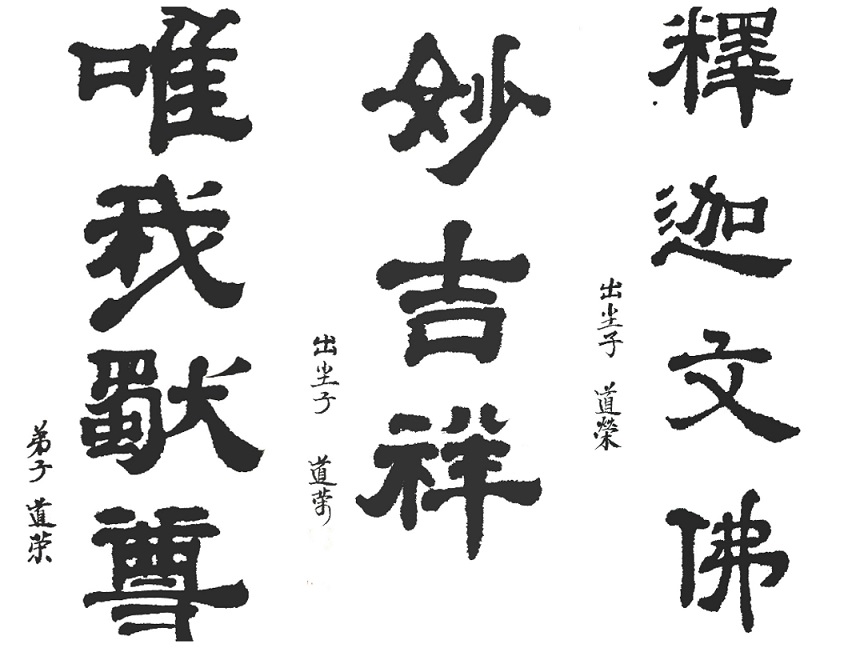 釋迦文佛
出尘子 道榮
妙吉祥
出尘子 道荣
唯我獨尊
弟子 道荣